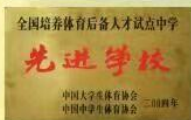 全国培养体育后备人才试点中学
先进学校
中国大学生体育协会
中国中学生体育协会
二〇〇四年